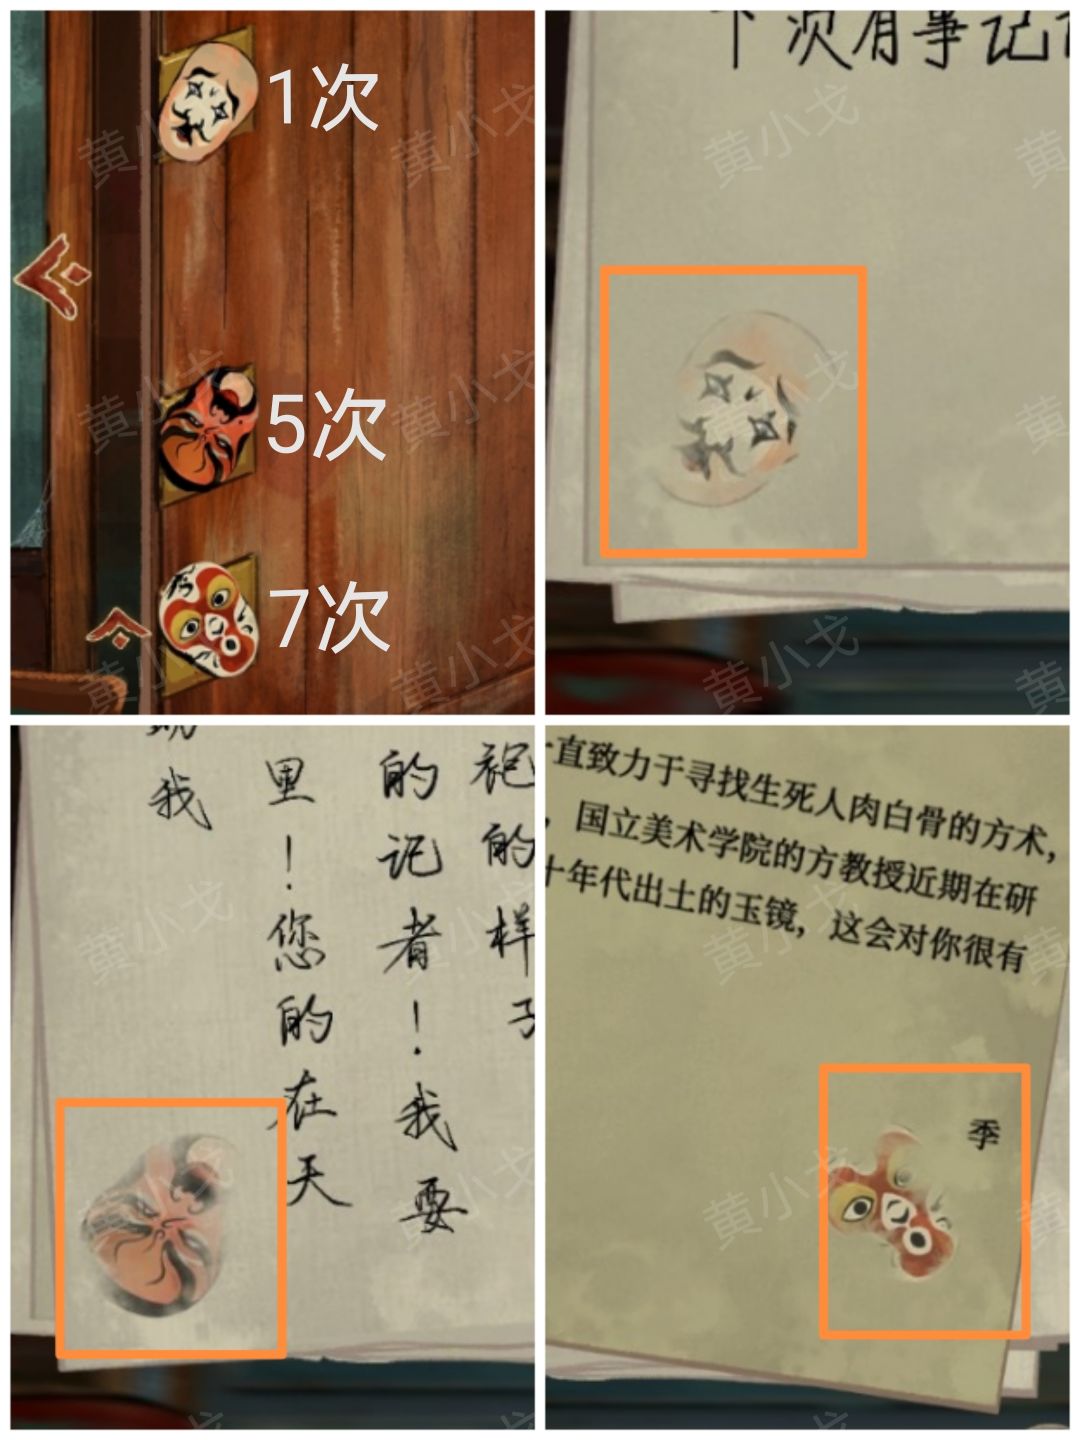 1次
5次
7次
下次有事记
我
里！您的在天
的记者！我要
袍的样子
一直致力于寻找生死人肉白骨的方术，
，国立美术学院的方教授近期在研
十年代出土的玉镜，这会对你很有
季
黄小戈